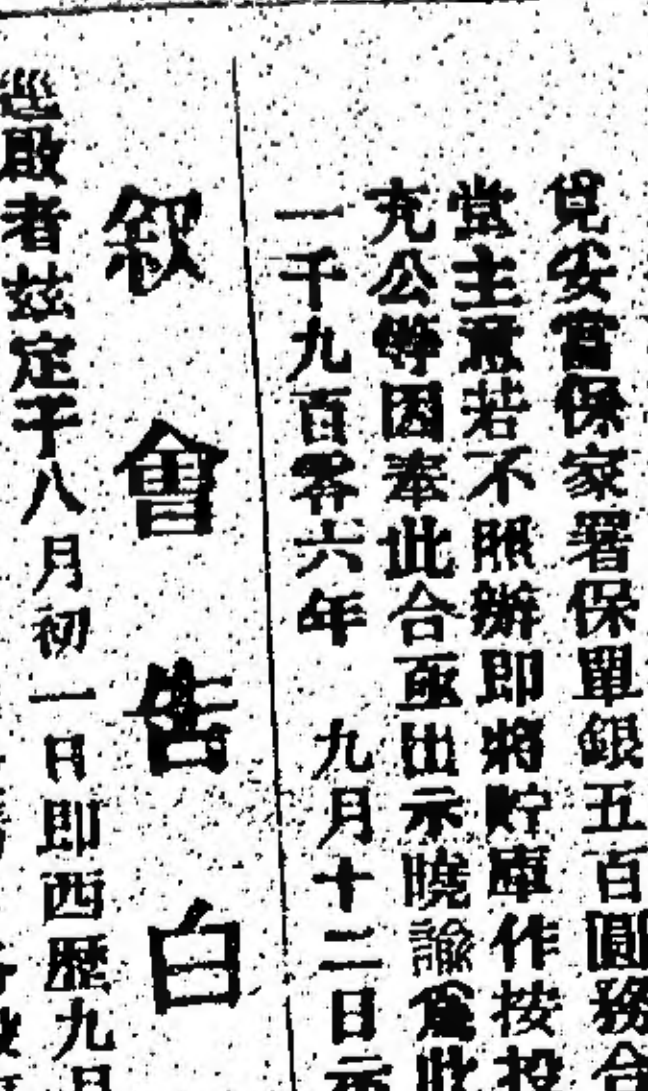 覓妥當保家署保單銀五百圓務合
堂主意若不照辦即將貯庫作按投
充公等因奉此合亟出示曉諭爲此
一千九百零六年 九月十二日示
敘會告白
逕啟者茲定于八月初一日即西歷九月